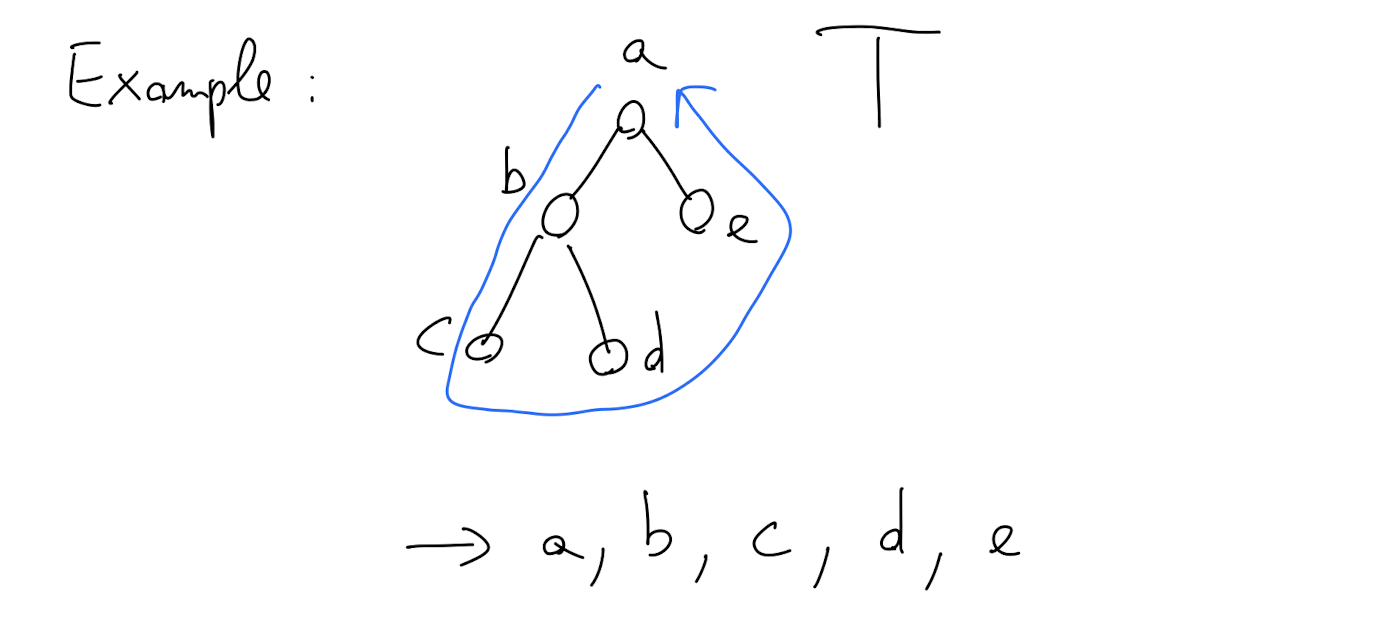 Example :
a
T
b
e
c
d
→ a, b, c, d, e